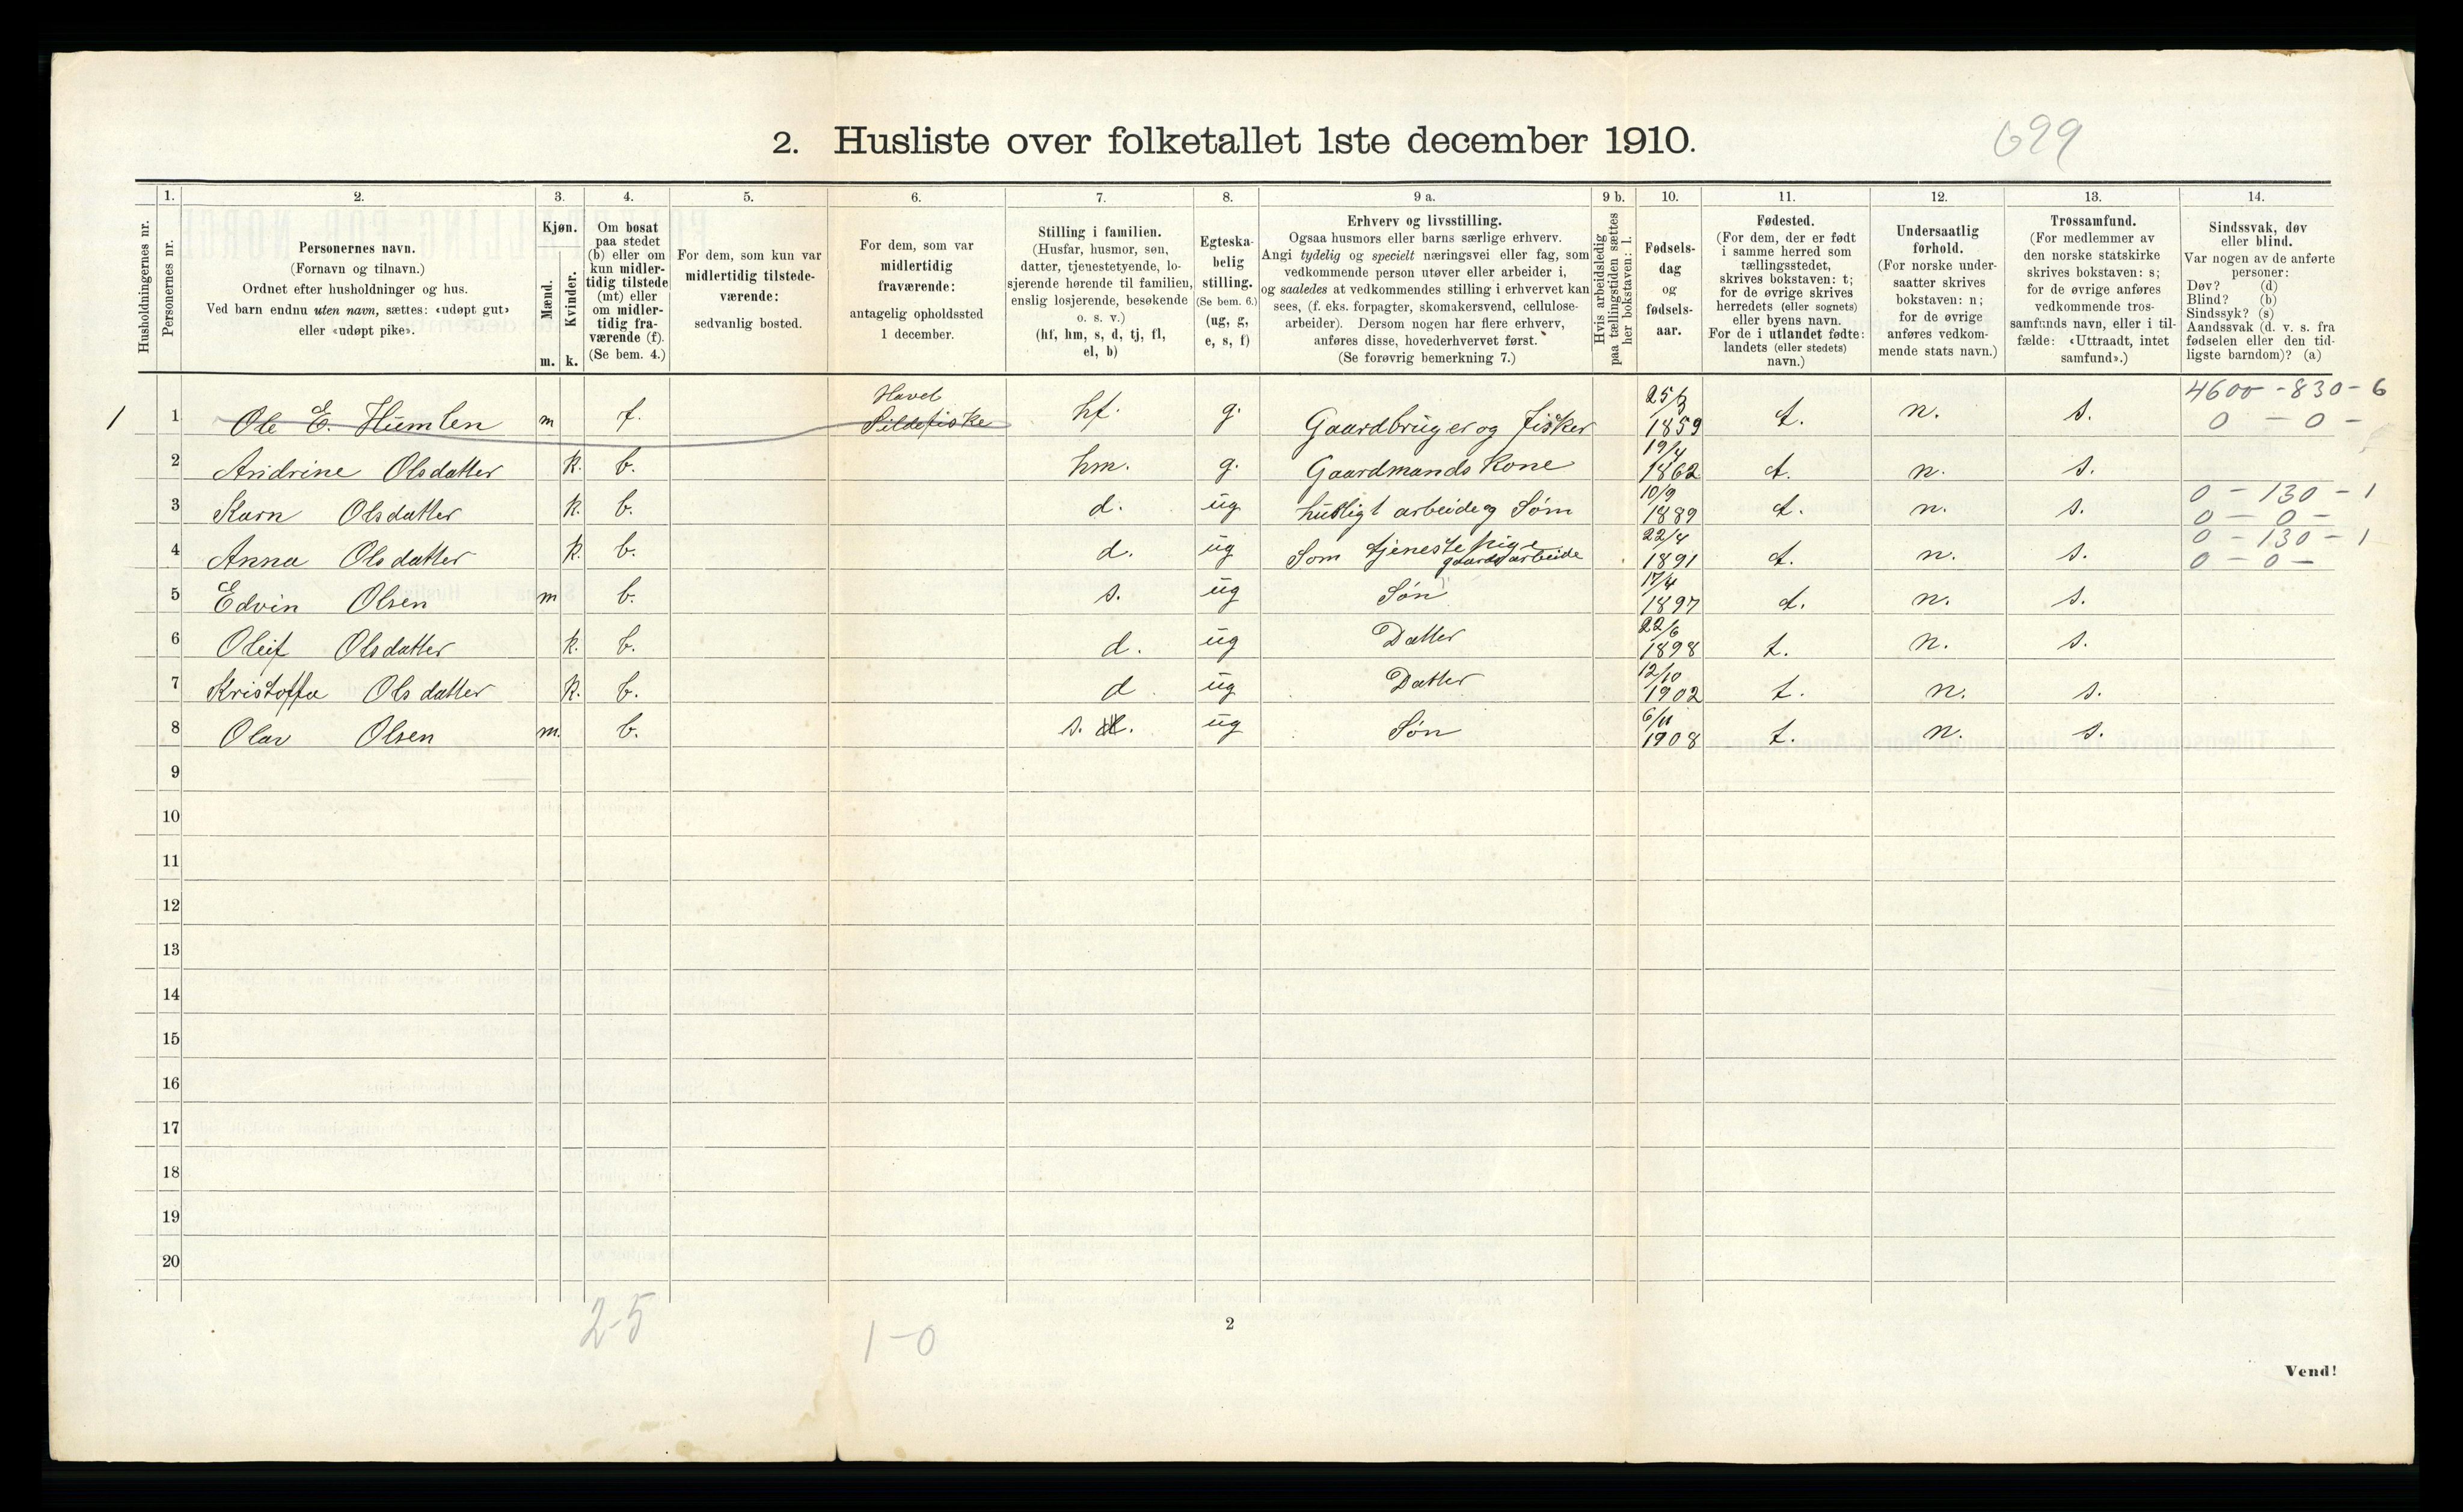 2. Husliste over folketallet 1ste december 1910.
699
Husholdningernes nr.
1.
Personernes nr.
2.
Personernes navn.
(Fornavn og tilnavn.)
Ordnet efter husholdninger og hus.
Ved barn endnu uten navn, sættes: «udøpt gut»
eller «udøpt pike».
3.
Kjøn.
Mænd.
Kvinder.
m. k.
4.
Om bosat
paa stedet
(b) eller om
kun midler-
tidig tilstede
(mt) eller
om midler-
tidig fra-
værende (f).
(Se bem. 4.)
5.
For dem, som kun var
midlertidig tilstede-
værende:
sedvanlig bosted.
6.
For dem, som var
midlertidig
fraværende:
antagelig opholdssted
1 december.
7.
Stilling i familien.
(Husfar, husmor, søn,
datter, tjenestetyende, lo-
sjerende hørende til familien,
enslig losjerende, besøkende
o. s. v.)
(hf, hm, s, d, tj, fl,
el, b)
8.
Egteska-
belig
stilling.
(Se bem. 6.)
(ug, g,
e, s, f)
9 a.
Erhverv og livsstilling.
Ogsaa husmors eller barns særlige erhverv.
Angi tydelig og specielt næringsvei eller fag, som
vedkommende person utøver eller arbeider i,
og saaledes at vedkommendes stilling i erhvervet kan
sees, (f. eks. forpagter, skomakersvend, cellulose-
arbeider). Dersom nogen har flere erhverv,
anføres disse, hovederhvervet først.
(Se forøvrig bemerkning 7.)
9 b.
Hvis arbeidsledig
paa tællingstiden sættes
her bokstaven: l.
10.
Fødsels-
dag
og
fødsels-
aar.
11.
Fødested.
(For dem, der er født
i samme herred som
tællingsstedet,
skrives bokstaven: t;
for de øvrige skrives
herredets (eller sognets)
eller byens navn.
For de i utlandet fødte:
landets (eller stedets)
navn.)
12.
Undersaatlig
forhold.
(For norske under-
saatter skrives
bokstaven: n;
for de øvrige
anføres vedkom-
mende stats navn.)
13.
Trossamfund.
(For medlemmer av
den norske statskirke
skrives bokstaven: s;
for de øvrige anføres
vedkommende tros-
samfunds navn, eller i til-
fælde: «Uttraadt, intet
samfund».)
14.
Sindssvak, døv
eller blind.
Var nogen av de anførte
personer:
Døv? (d)
Blind? (b)
Sindssyk? (s)
Aandssvak (d. v. s. fra
fødselen eller den tid-
ligste barndom)? (a)
1 1 Ole E. Humlen m f. Havet Sildefiske hf. g. Gaardbruger og fisker 25/3 1859 t. n. s. 4600 - 830 - 6
0 - 0 -
2 Andrine Olsdatter k. b. hm. g. Gaardmands Kone 19/4 1862 t. n. s.
3 Karn Olsdatter k. b. d. ug husligt arbeide og Søm 10/9 1889 t. n. s. 0 - 130 - 1
0 - 0 -
4 Anna Olsdatter k. b. d. ug Som tjenestepige gaardsarbeide 22/4 1891 t. n. s. 0 - 130 - 1
0 - 0 -
5 Edvin Olsen m b. s. ug Søn 17/4 1897 t. n. s.
6 Oleif Olsdatter k. b. d. ug Datter 22/6 1898 t. n. s.
7 Kristoffa Olsdatter k. b. d ug Datter 12/10 1902 t. n. s.
8 Olav Olsen m. b. s. ug Søn 6/11 1908 t. n. s.
9
10
11
12
13
14
15
16
17
18
19
20
2-5
1-0
2
Vend!